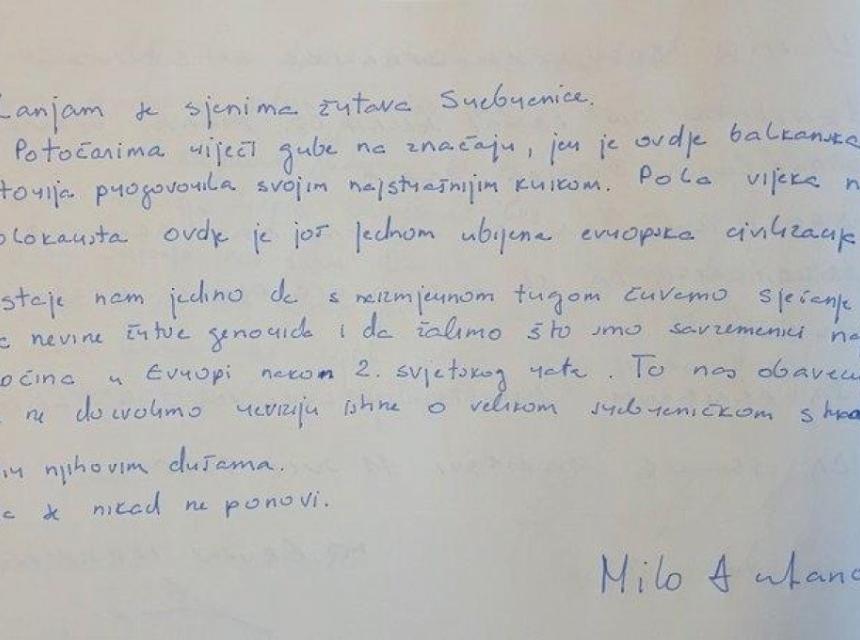 lanjam se sjenima žrtava Srebrenice.
Potočarima riječi gube na značaju, jer je ovdje balkanska
torija progovorila svojim najstrašnijim krikom. Pola vijeka n
olokausta ovdje je još jednom ubijena evropska civilizacija
staje nam jedino da s neizmjernom tugom čuvamo sjećanje
a nevine žrtve genocida i da žalimo što smo savremenici na
očina u Evropi nakon 2. svjetskog rata. To nas obavezu
ne dozvolimo reviziju istine o velikom srebreničkom stra
ir njihovim dušama.
a se nikad ne ponovi.
Milo